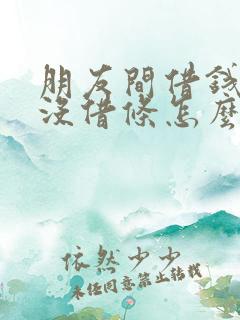 朋友間借錢
沒借條怎麼
依然少少
未经同意禁止转载